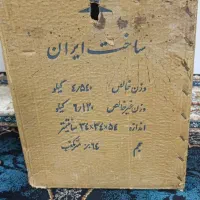 ساخت ایران
وزن خالص ۴/۵۴۰ کیلو
وزن غیرخالص ۶/۱۲۰ کیلو
اندازه ۵۴×۳۴×۳۴ سانتیمتر
حجم ۰/۰۶۴ متر مکعب